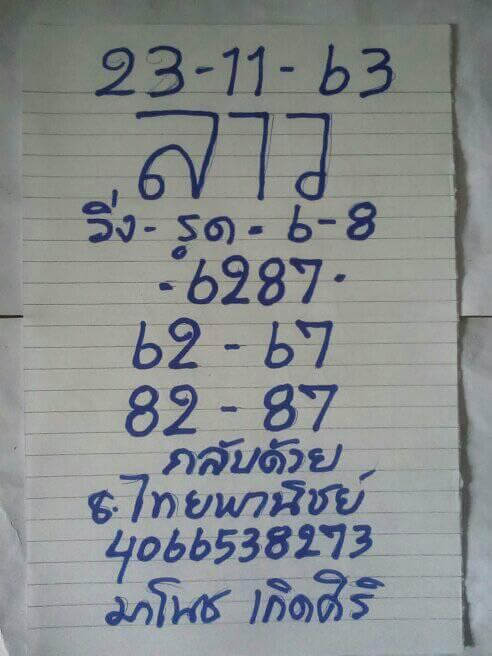 23-11-63
ลาว
วิ่ง - รูด - 6-8
- 6287 -
62 - 67
82 - 87
กลับด้วย
ธ.ไทยพานิชย์
4066538273
มาโนช เกิดศิริ